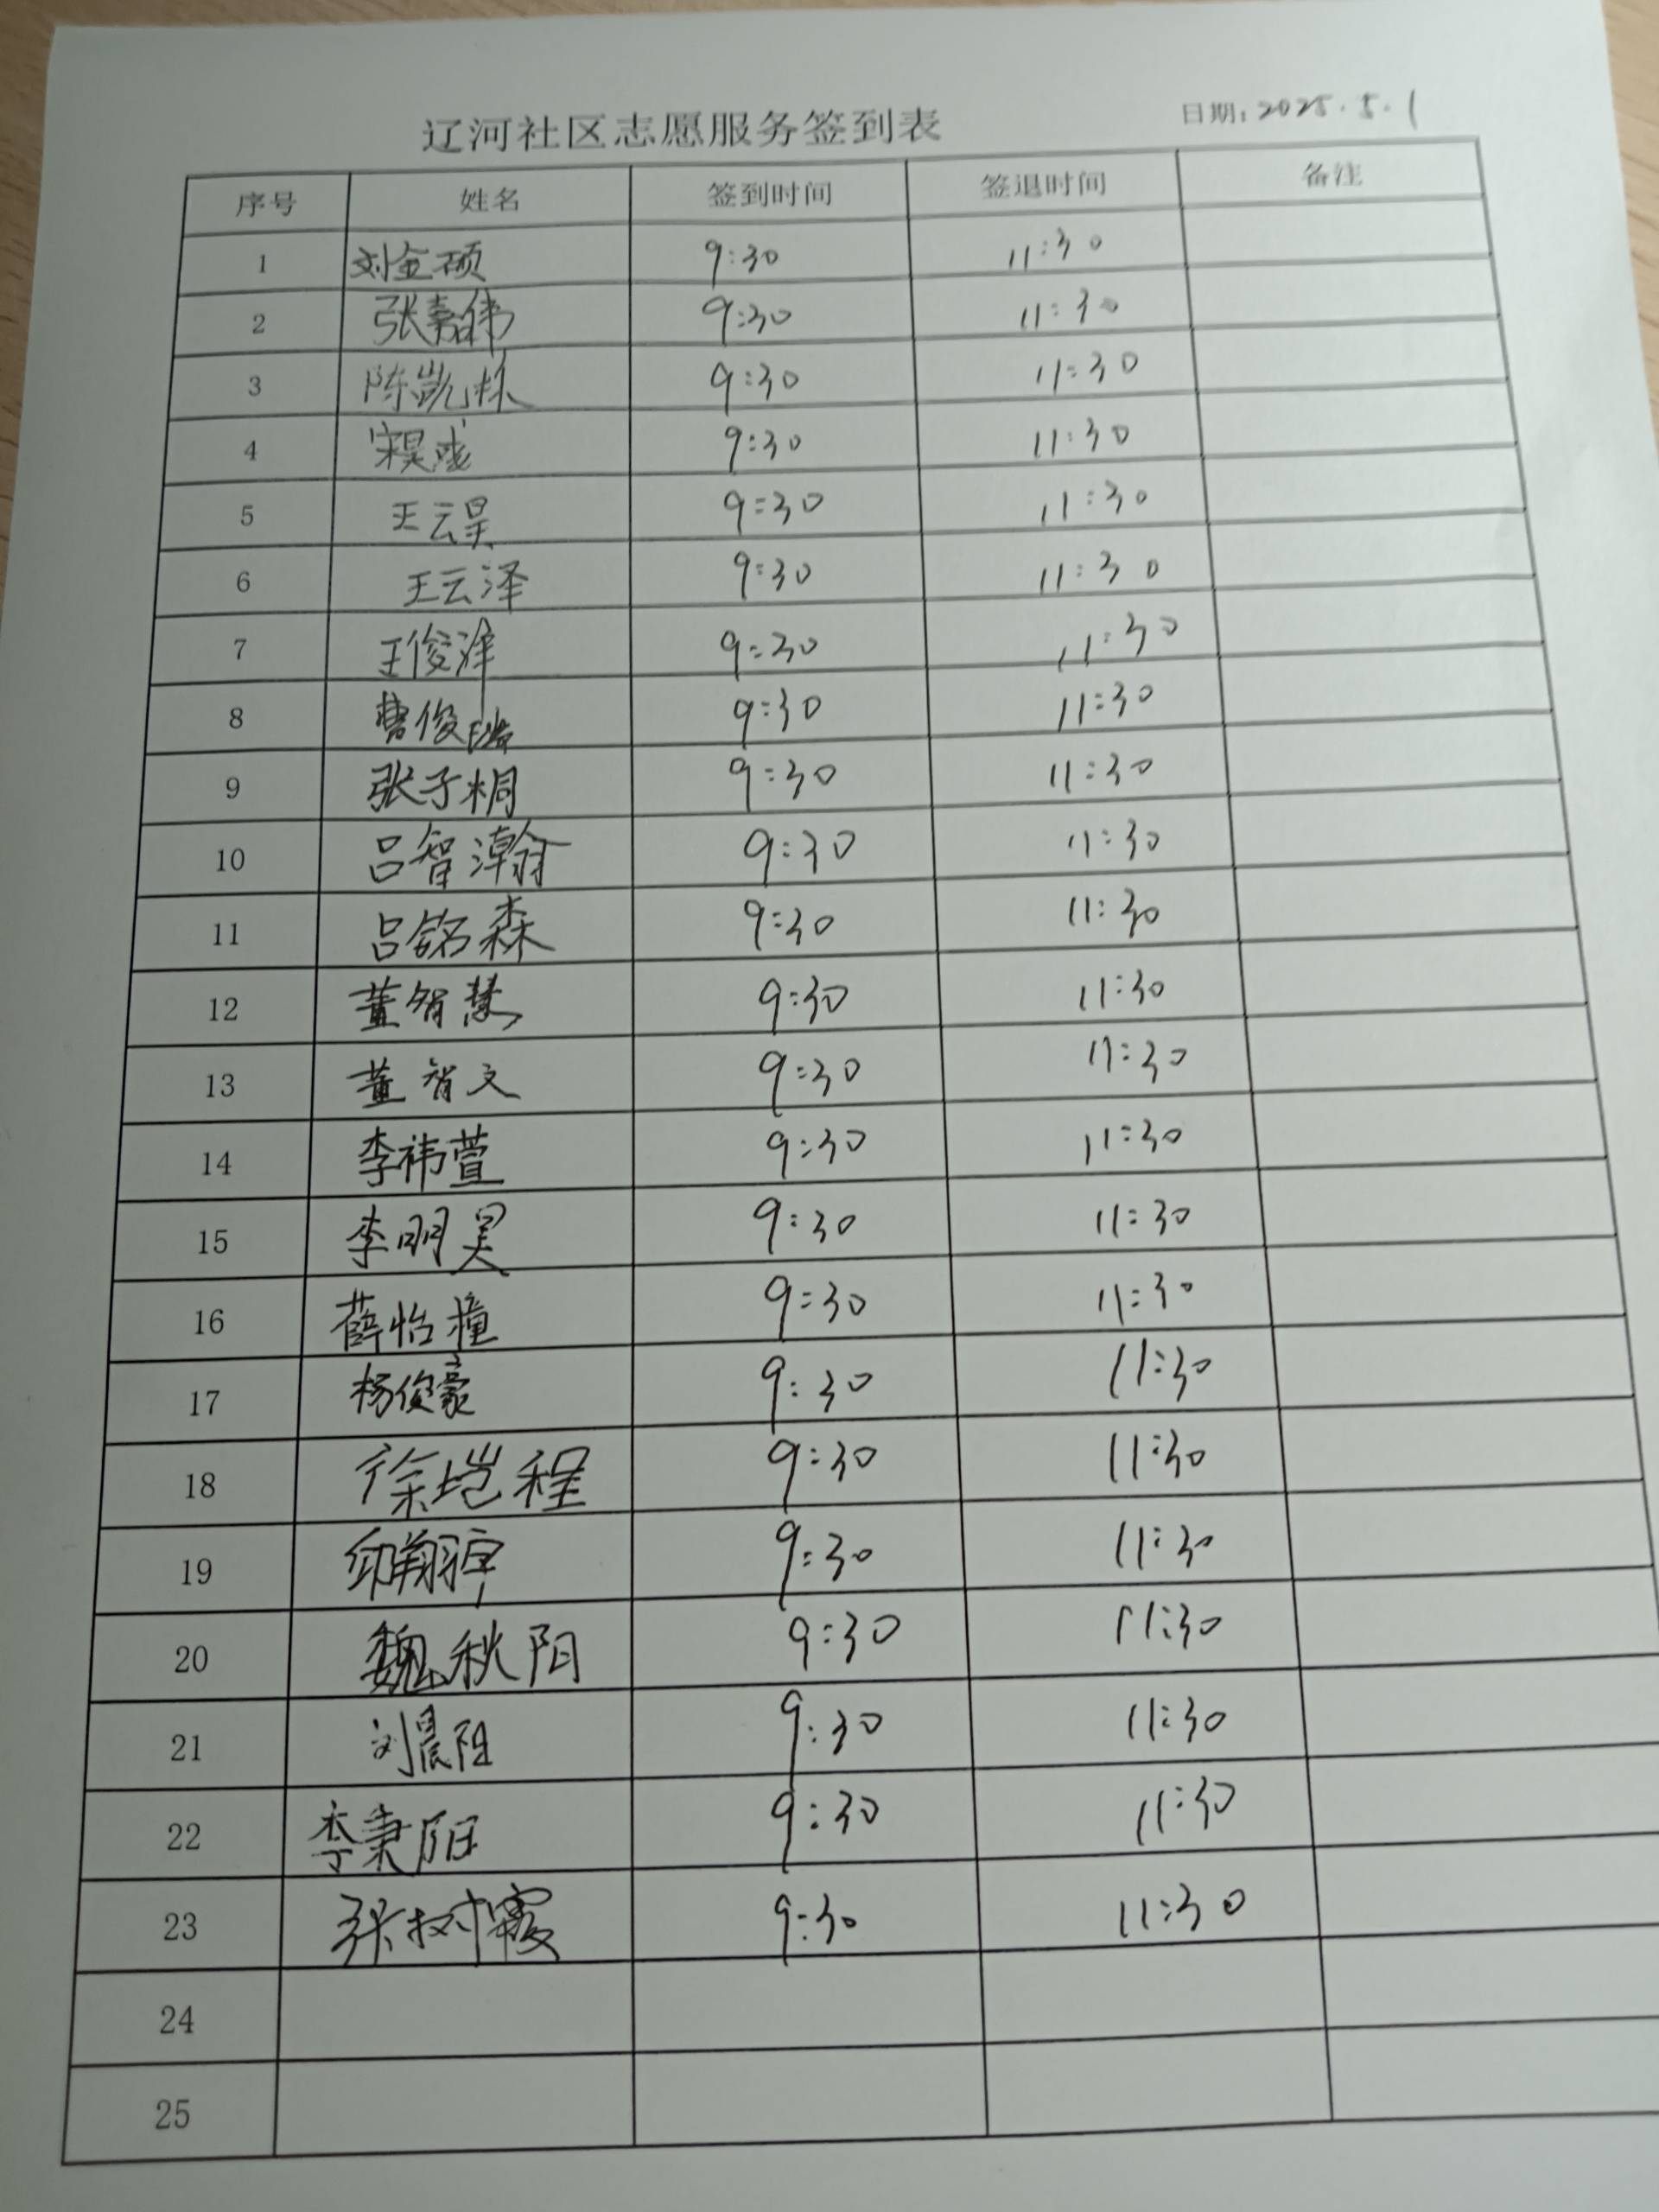 辽河社区志愿服务签到表 日期：2025.5.1
序号 姓名 签到时间 签退时间 备注
1 刘金硕 9:30 11:30
2 张嘉伟 9:30 11:30
3 陈凯栎 9:30 11:30
4 宋昊彧 9:30 11:30
5 王云昊 9:30 11:30
6 王云泽 9:30 11:30
7 王俊泽 9:30 11:30
8 曹俊 9:30 11:30
9 张子桐 9:30 11:30
10 吕智瀚 9:30 11:30
11 吕铭森 9:30 11:30
12 董智慧 9:30 11:30
13 董智文 9:30 11:30
14 李祎萱 9:30 11:30
15 李明昊 9:30 11:30
16 薛怡橦 9:30 11:30
17 杨俊豪 9:30 11:30
18 徐垲程 9:30 11:30
19 9:30 11:30
20 魏秋阳 9:30 11:30
21 刘晨阳 9:30 11:30
22 李秉阳 9:30 11:30
23 张树霞 9:30 11:30
24
25